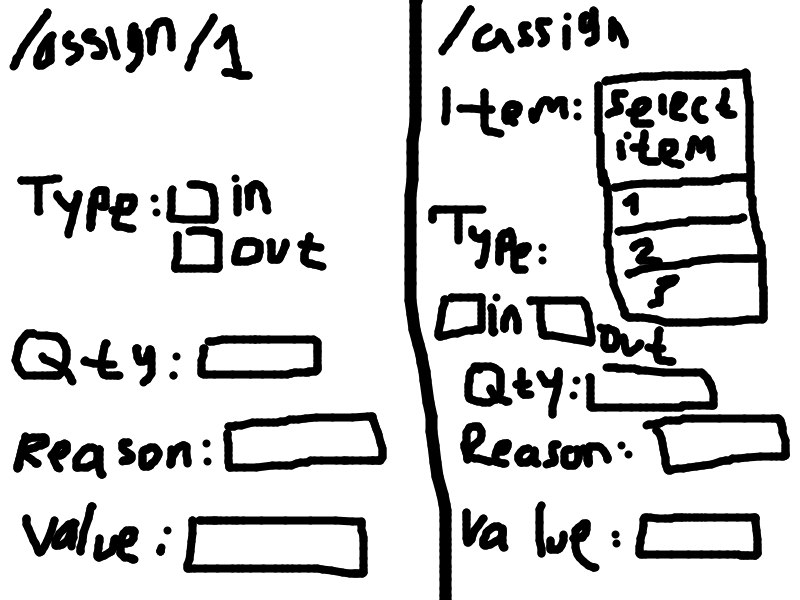 /assign/1
Type: in
out
Qty:
Reason:
Value:
/assign
Item: select
item
1
2
3
Type:
in out
Qty:
Reason:
Value: